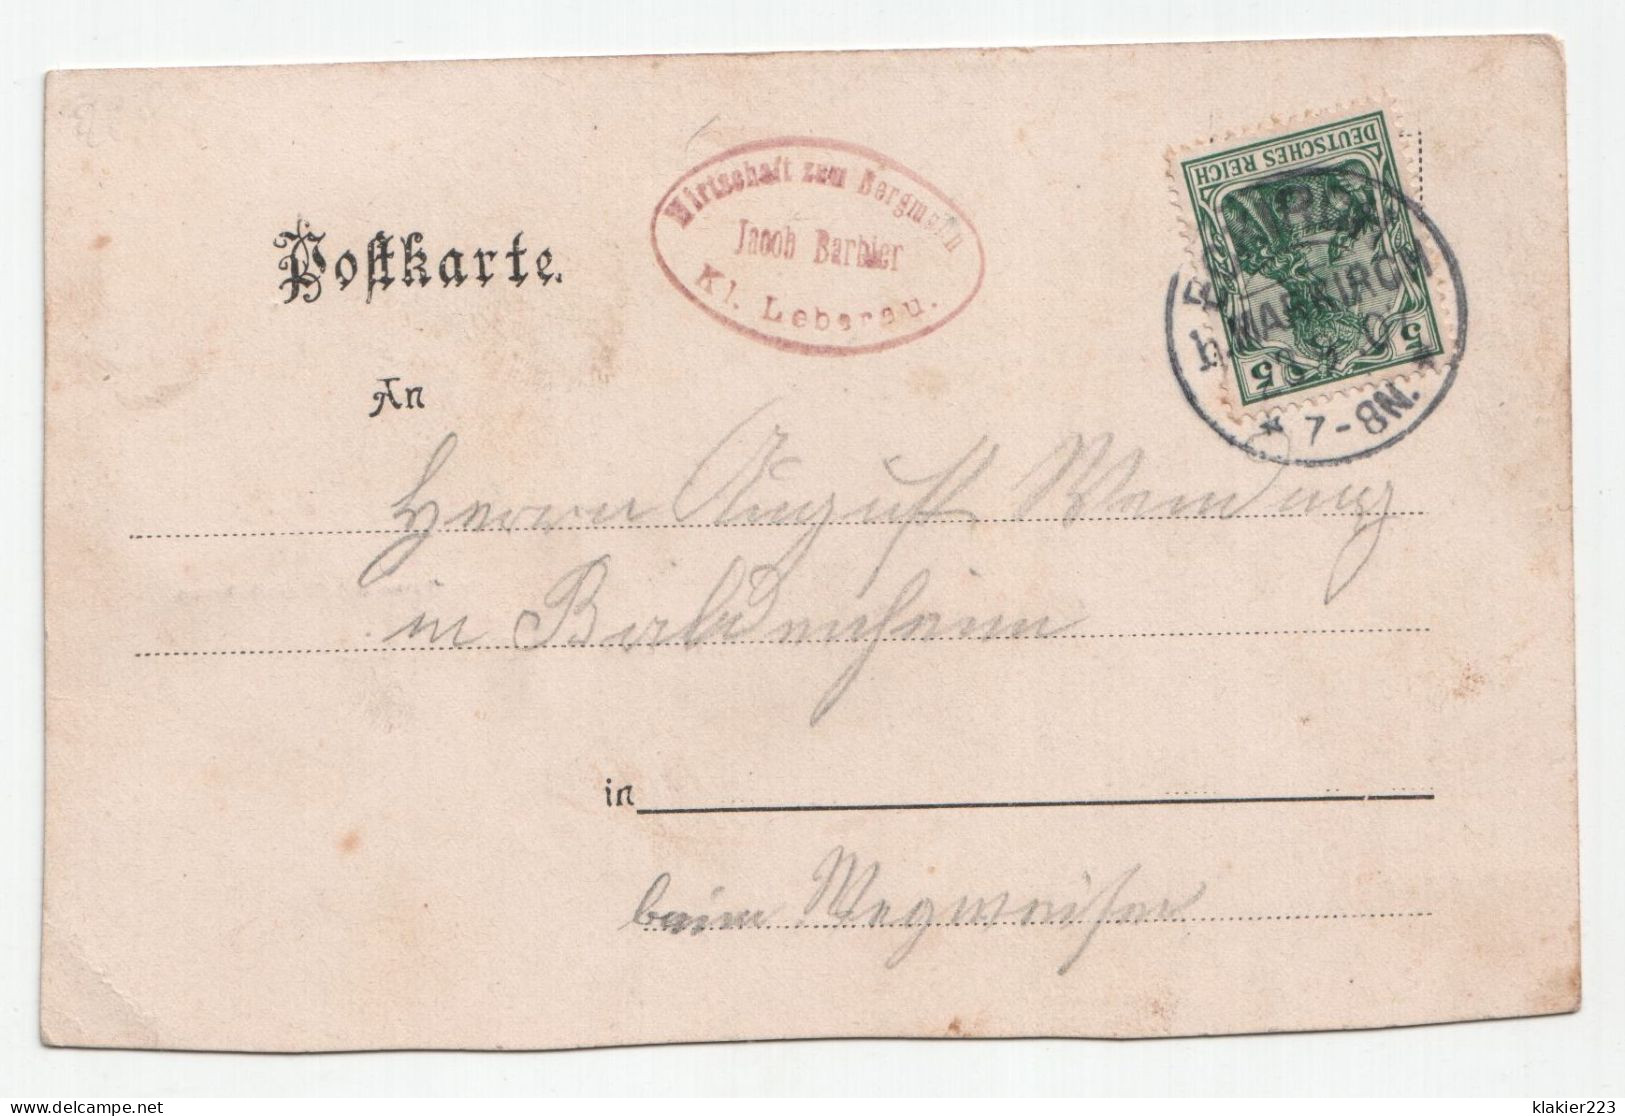 Wirtschaft zum Bergmann
Jacob Barbier
Kl. Leberau.
DEUTSCHES REICH
5 5
b. MARKIRCH
* 7-8N. *
Postkarte.
An
Herrn August Wendung
in Baldenheim
in
beim Wegweiser
klakier223